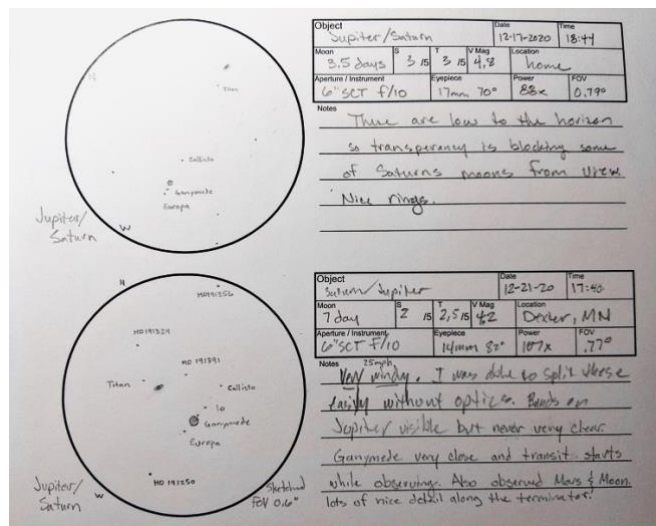 N
Titan
Callisto
Ganymede
Europa
Jupiter/
Saturn
W
Object
Jupiter/Saturn
Date
12-17-2020
Time
18:44
Moon
3.5 days
S
3 /5
T
3 /5
V Mag
4.8
Location
home
Aperture / Instrument
6" SCT f/10
Eyepiece
17mm 70°
Power
88x
FOV
0.79°
Notes
These are low to the horizon
so transparency is blocking some
of Saturns moons from view.
Nice rings.
N
HD191256
HD191329
HD 191891
Titan
Callisto
Io
Ganymede
Europa
HD 191250
Jupiter/
Saturn
W
Sketched
FOV 0.6°
Object
Saturn/Jupiter
Date
12-21-20
Time
17:40
Moon
7 day
S
2 /5
T
2.5 /5
V Mag
4.2
Location
Dexter, MN
Aperture / Instrument
6" SCT F/10
Eyepiece
14mm 82°
Power
107x
FOV
.77°
Notes
25mph
Very windy. I was able to split these
easily without optics. Bands on
Jupiter visible but never very clear.
Ganymede very close and transit starts
while observing. Also observed Mars & Moon.
lots of nice detail along the terminator!